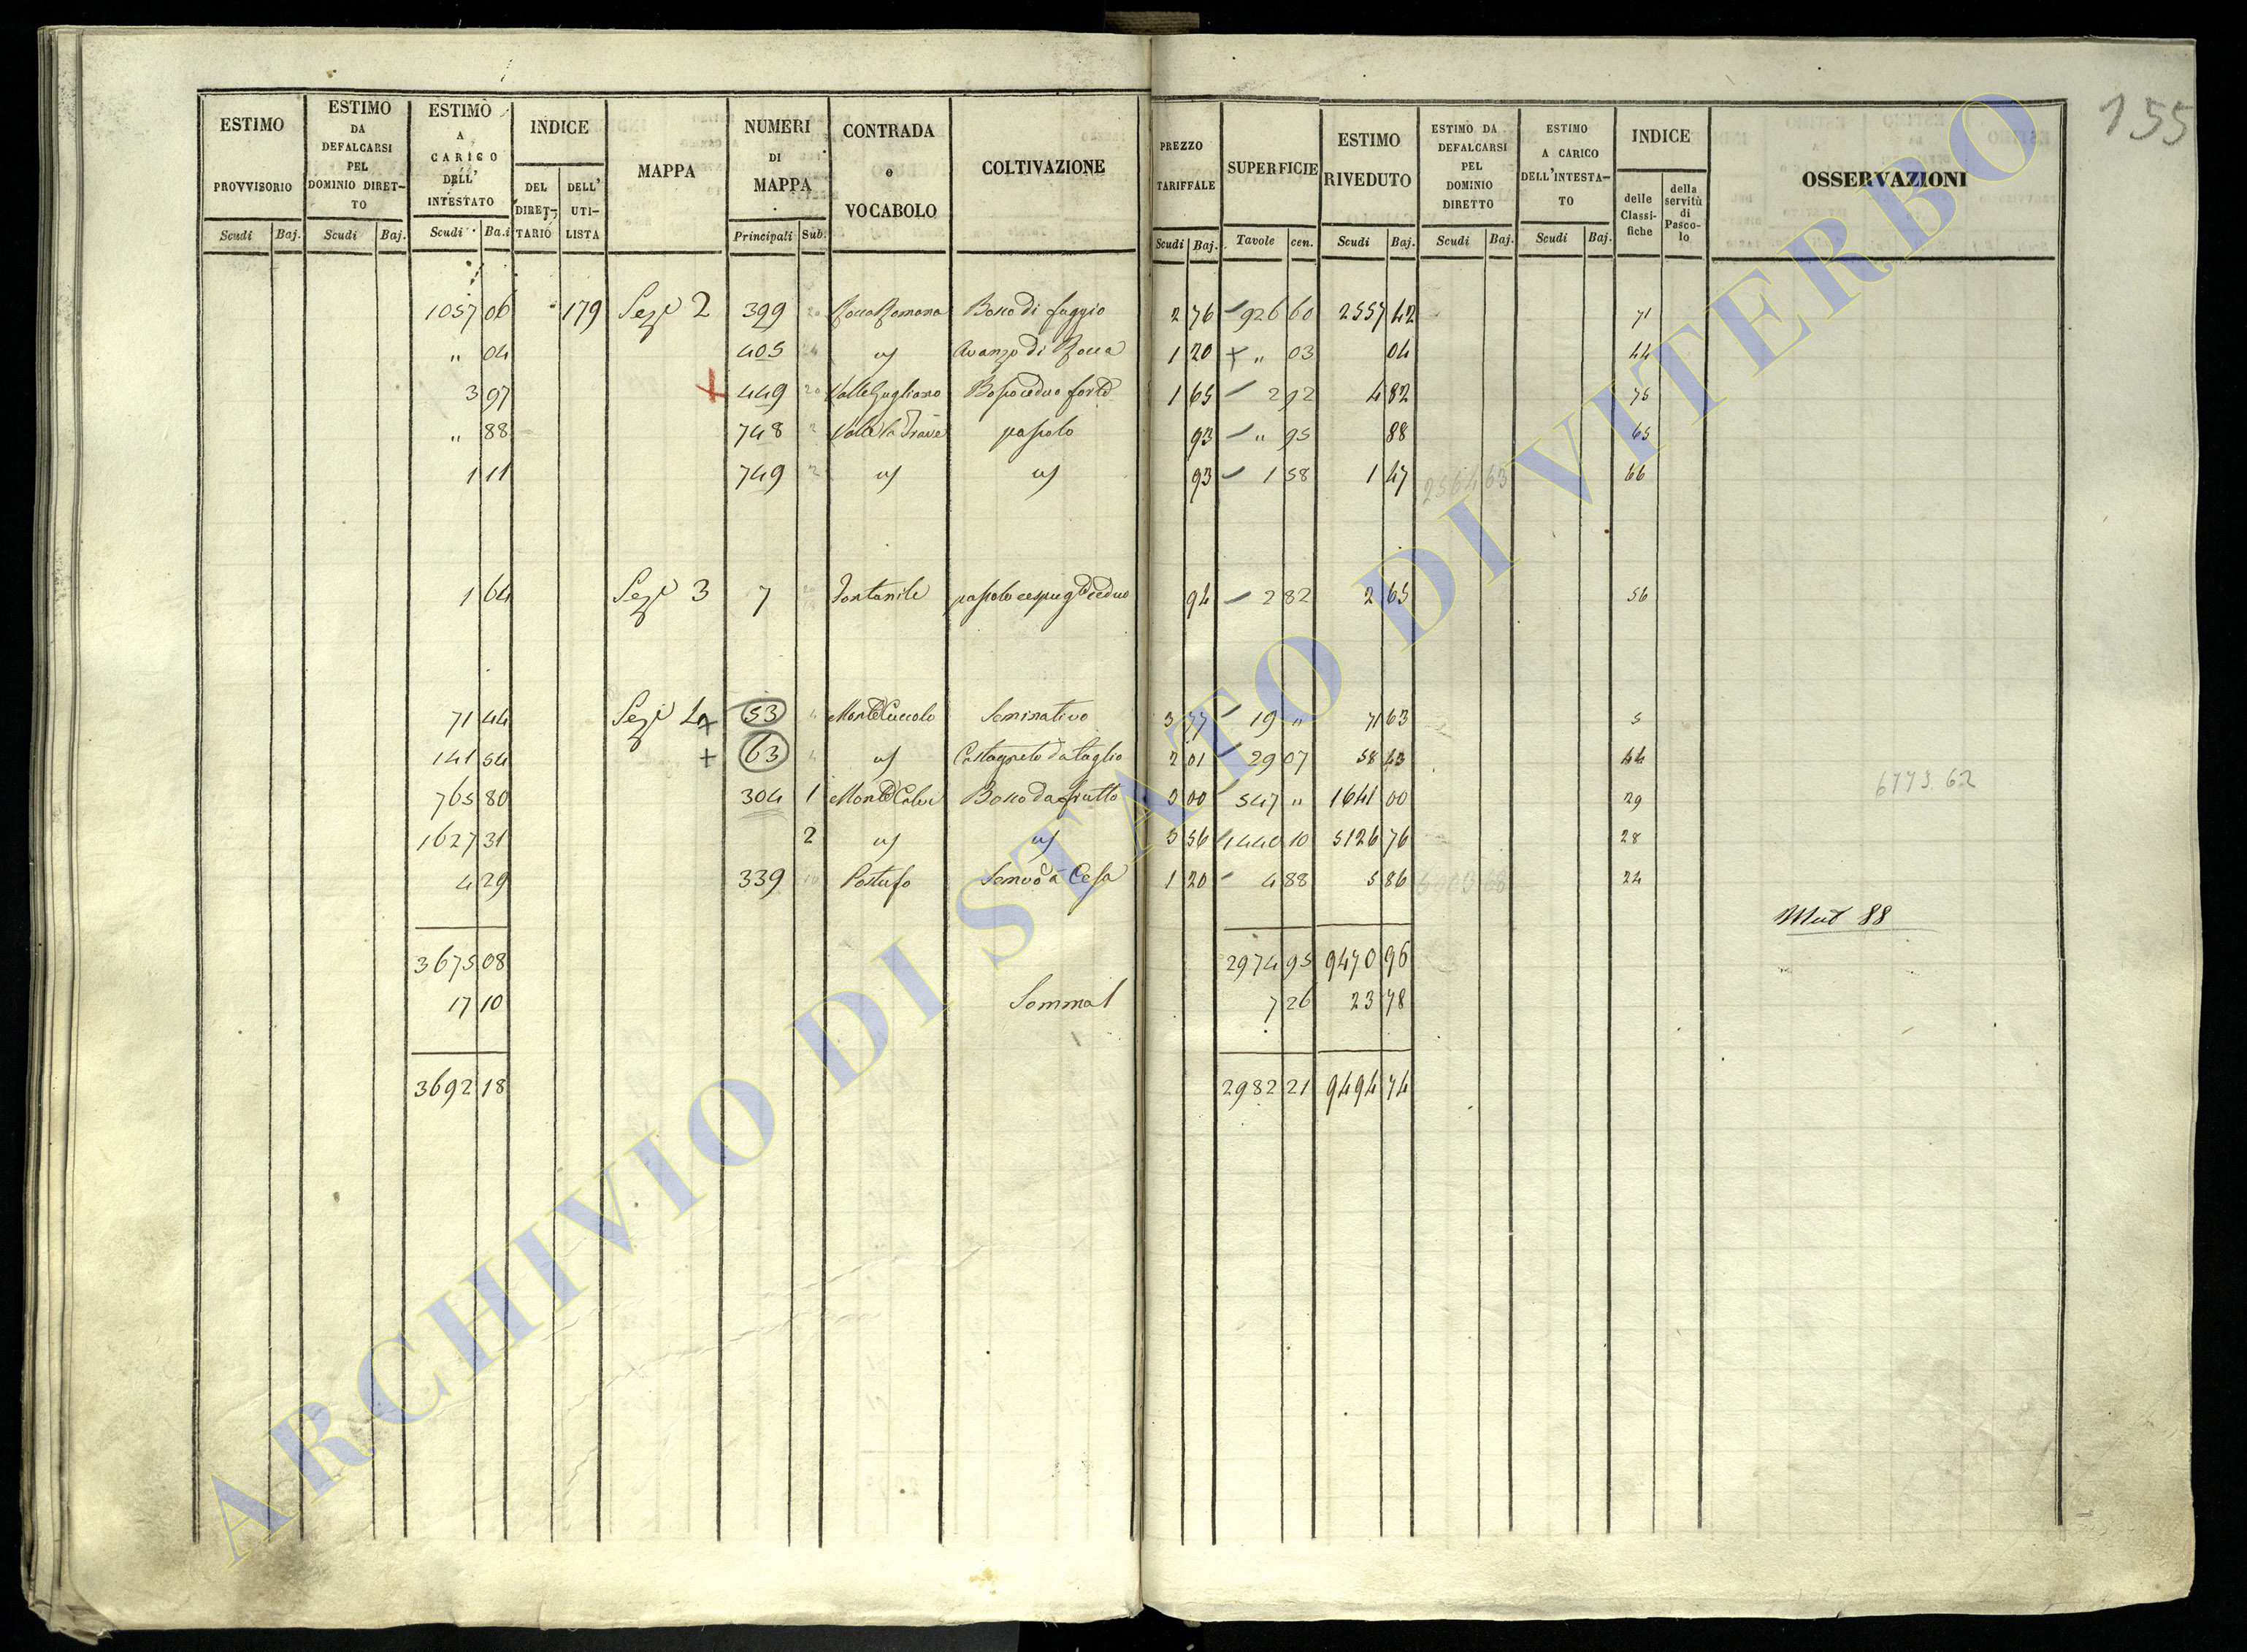 155
ESTIMO PROVVISORIO Scudi Baj.
ESTIMO DA DEFALCARSI PEL DOMINIO DIRETTO Scudi Baj.
ESTIMO A CARICO DELL' INTESTATO Scudi Ba.i
INDICE DEL DIRETTARIO DELL' UTILISTA
MAPPA
NUMERI DI MAPPA Principali Sub.
CONTRADA e VOCABOLO
COLTIVAZIONE
PREZZO TARIFFALE Scudi Baj.
SUPERFICIE Tavole cen.
ESTIMO RIVEDUTO Scudi Baj.
ESTIMO DA DEFALCARSI PEL DOMINIO DIRETTO Scudi Baj.
ESTIMO A CARICO DELL'INTESTATO Scudi Baj.
INDICE delle Classifiche della servitù di Pascolo
OSSERVAZIONI
1057 06 179 Seze 2 399 20 Rocca Romana Bosco di faggio 2 76 926 60 2557 42 71
" 04 405 24 uf Avanzo di Rocca 1 20 + " 03 04 44
3 97 + 449 20 Valle Gugliano Bosco ceduo forte 1 65 2 92 4 82 75
" 88 748 2 Valle la Trave pascolo 93 " 95 88 65
1 11 749 2 uf uf 93 1 58 1 47 2564 63 66
1 64 Seze 3 7 Fontanile pascolo cespugl ceduo 94 2 82 2 65 56
71 44 Seze 4 + 53 4 Monte Cuccolo Seminativo 3 77 19 " 71 63 5
141 54 + 63 4 uf Castagneto da taglio 2 01 29 07 58 43 44
765 80 304 1 Monte Calvi Bosco da frutto 3 00 547 " 1641 00 29
6773.62
1627 31 2 uf uf 3 56 1440 10 5126 76 28
4 29 339 10 Postufo Semvo a Casa 1 20 4 88 5 86 24
Mut 88
3675 08 2974 95 9470 96
17 10 Somma 1 7 26 23 78
3692 18 2982 21 9494 74
ARCHIVIO DI STATO DI VITERBO